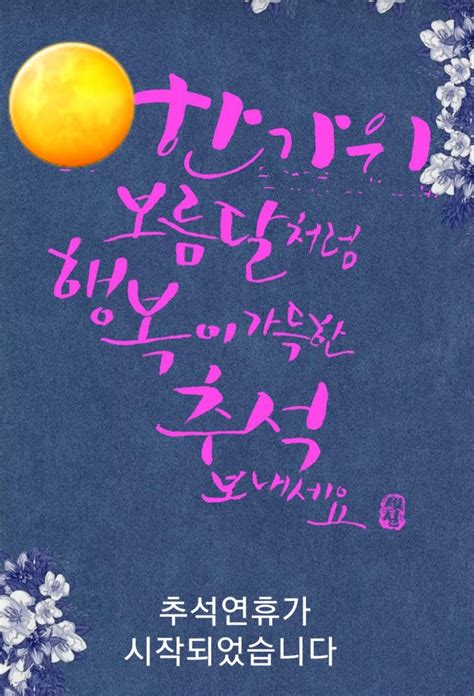 한가위
보름달처럼
행복이가득한
추석
보내세요
추석연휴가
시작되었습니다